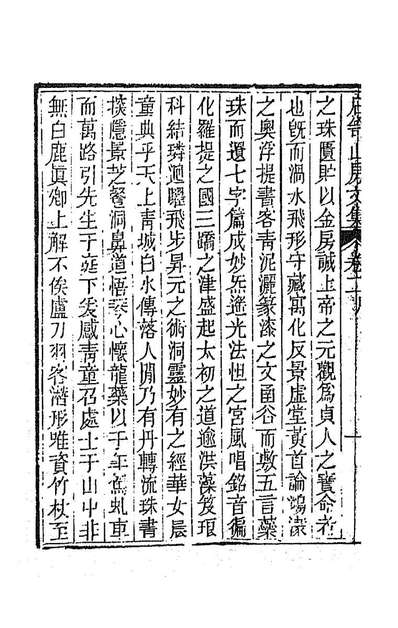 之珠匱貯以金房誠上帝之元觀為貞人之寶命者
也旣而渦水飛形守藏寓化反景虛堂黃首論鴻濛
之奧浮提書客靑泥灑篆漆之文函谷而敷五言藥
珠而還七字篇成妙炁遙光法怛之宮風唱銘音徧
化羅提之國三蹻之津盛起太初之道逾洪藻笈琅
科結璘迴曜飛步昇元之術洞靈妙有之經華女晨
童典乎天上靑城白水傳落人閒乃有丹轉流珠書
探隱景芝餐洞鼻道悟琴心懷龍藥以千年馭虬車
而萬路引先生于庭下爰感靑童召處士于山中非
無白鹿眞卿上解不俟盧刀羽客潛形唯資竹杖至
山房文集
卷